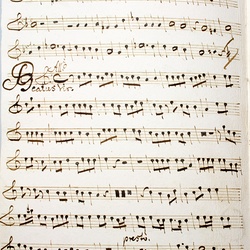 Beatus Vir.
presto.